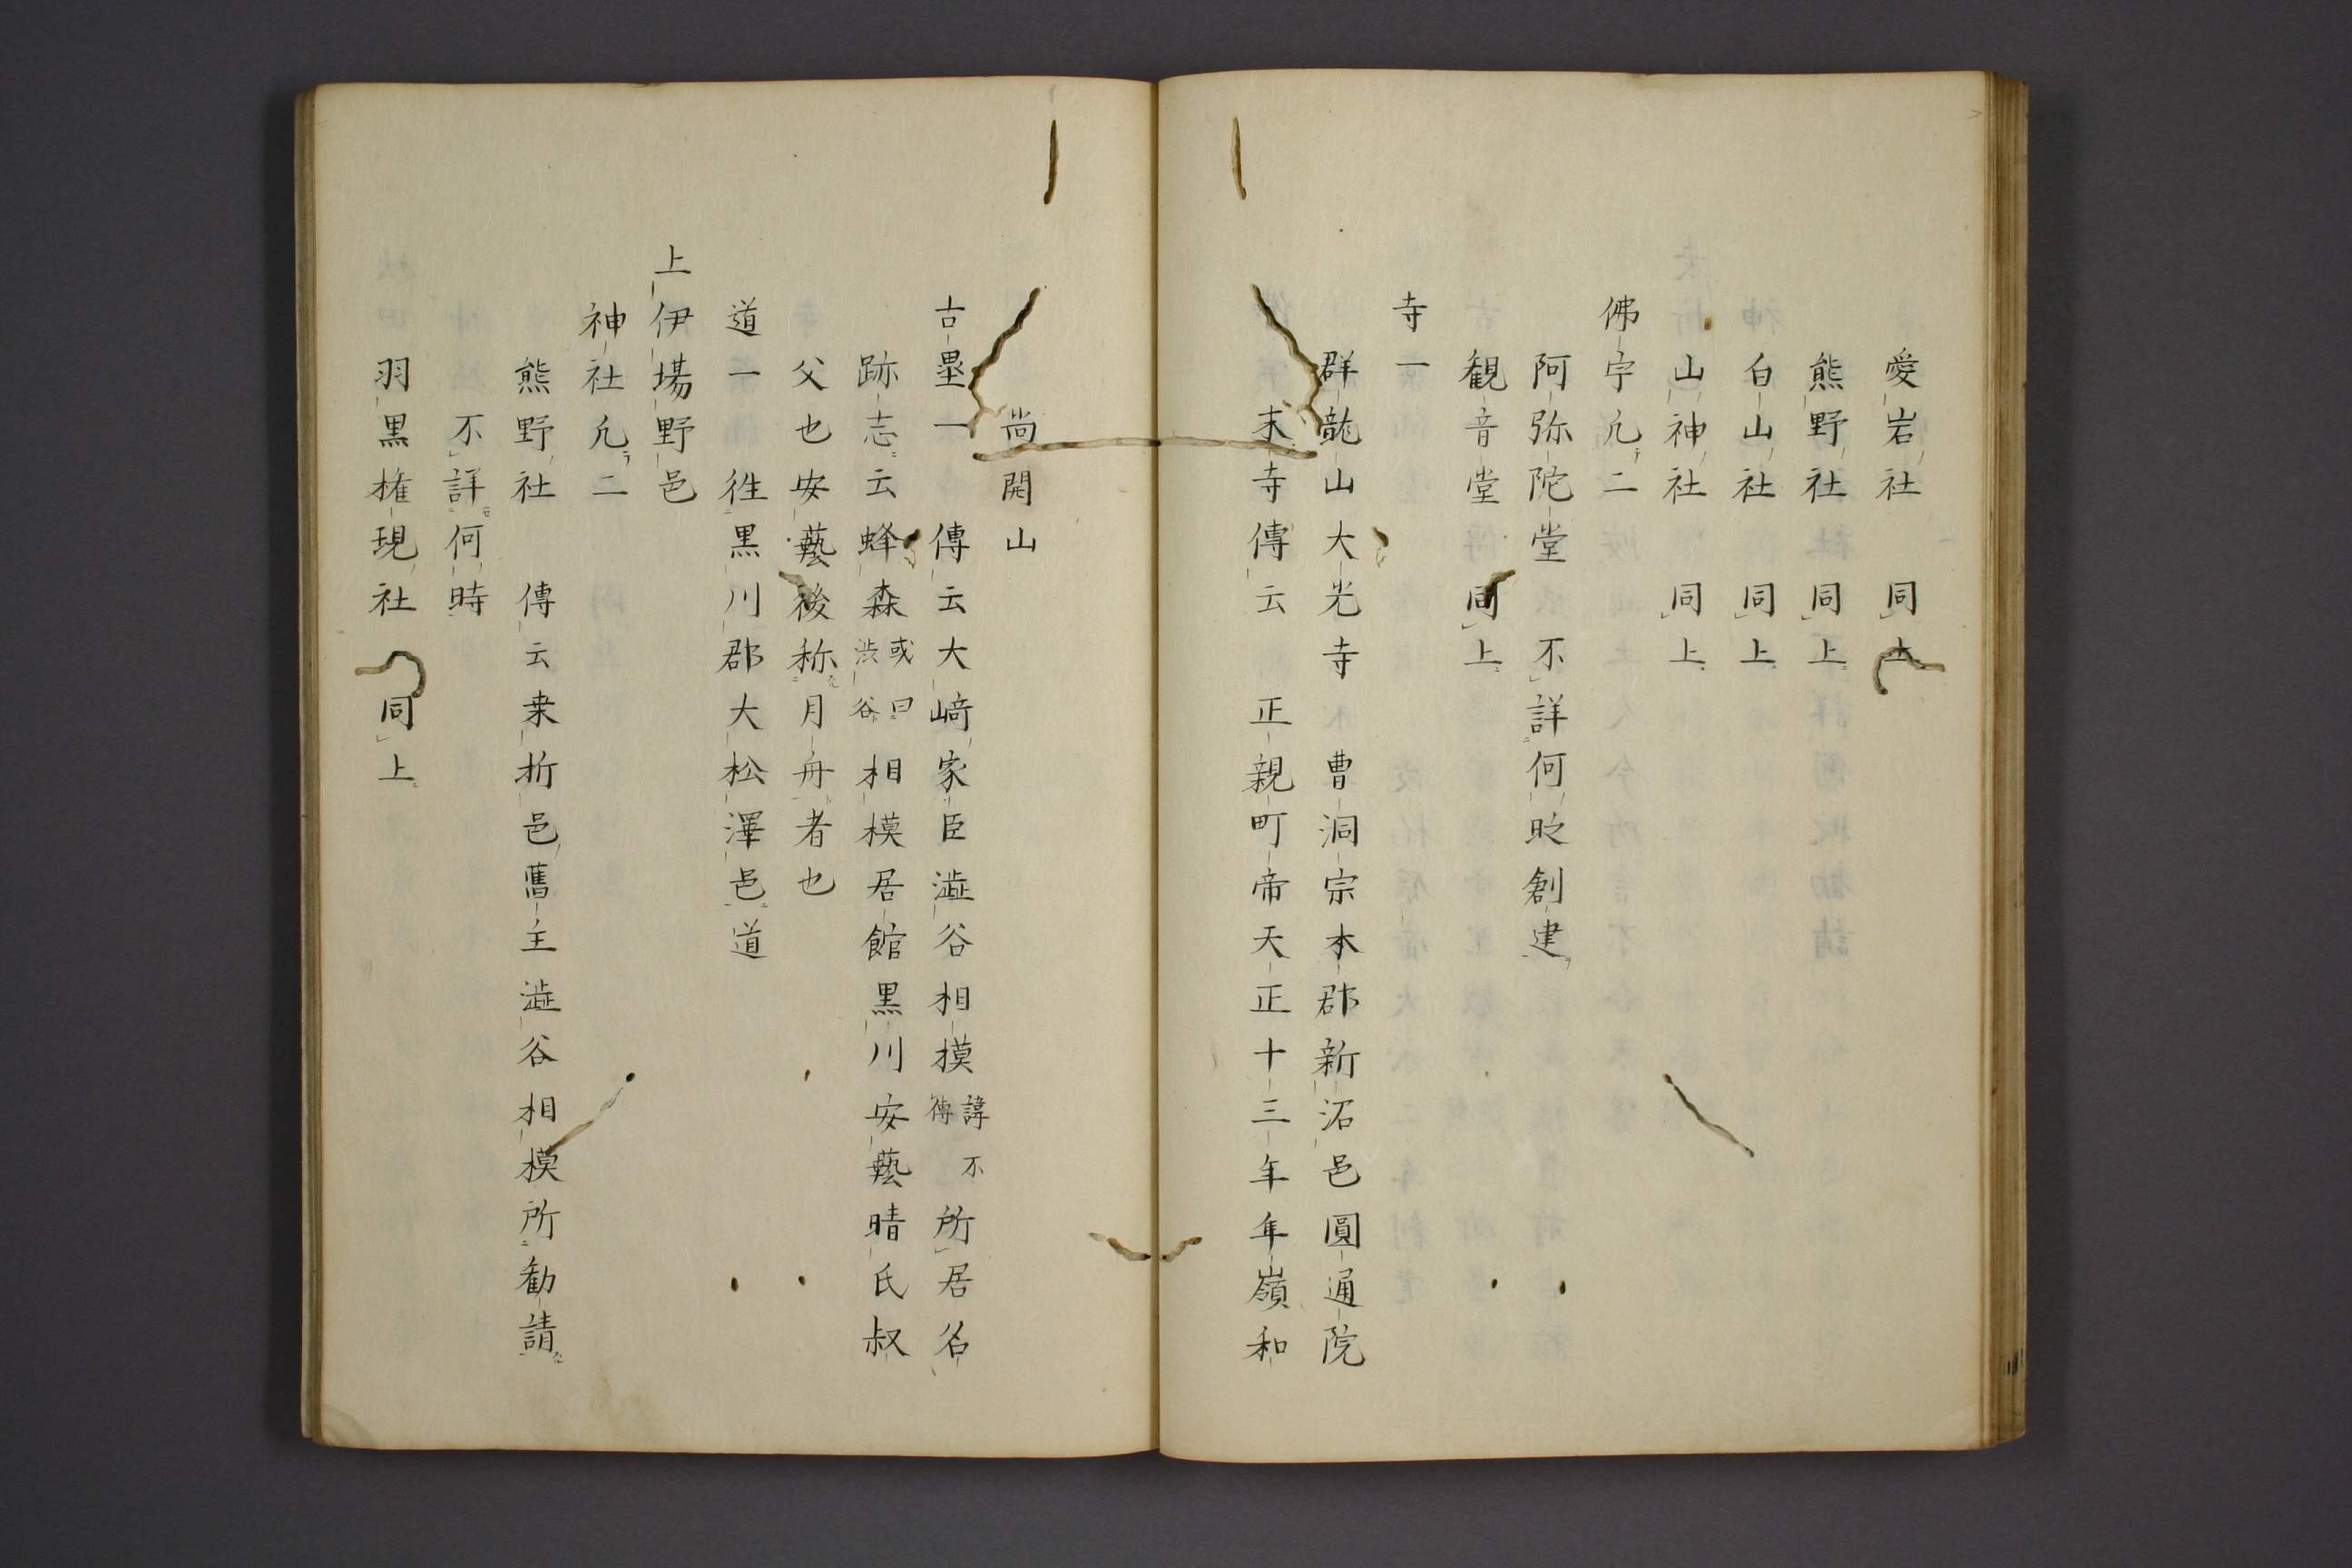 愛岩社 同上
熊野社 同上
白山社 同上
山神社 同上
佛宇凢二
阿弥陀堂 不詳何時創建
観音堂 同上
寺一
群龍山大光寺 曹洞宗本郡新沼邑圓通院
末寺傳云 正親町帝天正十三年年嶺和
尚開山
古壘一 傳云大﨑家臣澁谷相摸諱不傳所居名
跡志云蜂森或曰渋谷相模居館黒川安藝晴氏叔
父也安藝後称月舟者也
道一 徃黒川郡大松澤邑道
上伊場野邑
神社凢二
熊野社 傳云桒折邑舊主澁谷相模所勧請
不詳何時
羽黒権現社 同上